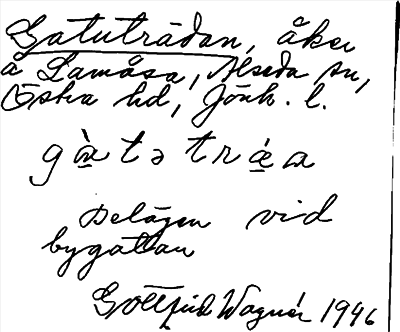 Gatuträdan, åker
å Lamåsa, Alseda sn,
Östra hd, Jönk. l.
gàtə tráa
Belägen vid
bygatan
Gottfrid Wagnér 1946